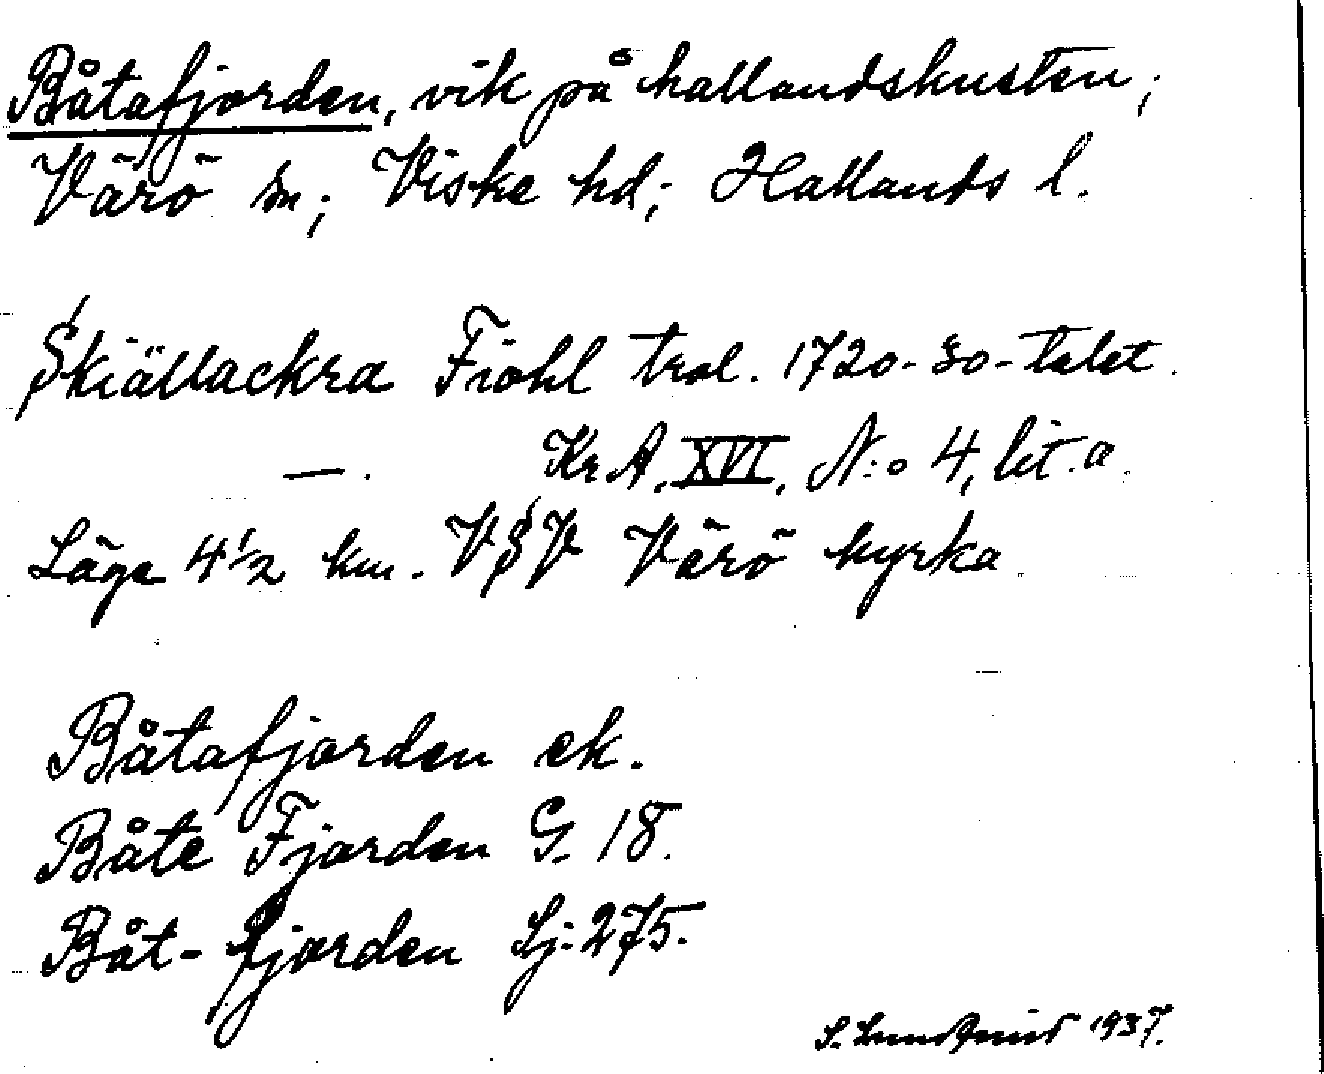 Båtafjorden, vik på hallandskusten;
Värö sn; Viske hd; Hallands l.
Skiällackra Fiöhl trol. 1720-30-talet.
—. Kr.A. XVI, N:o 4, lit. a.
Läge 4 1/2 km. VSV Värö kyrka
Båtafjorden ek.
Båte Fjorden G. 18.
Båt-fjorden Lj. 275.
S. Lundquist 1937.